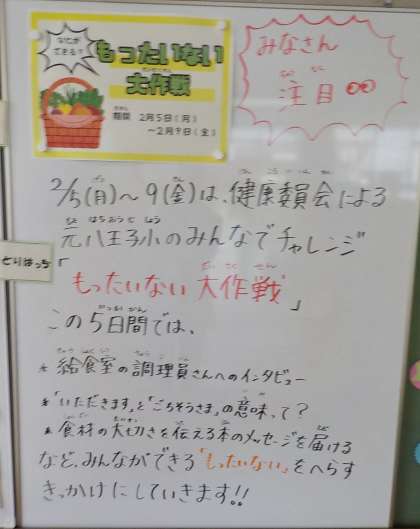 なにが
できる？
もったいない
大作戦
期間 2月5日(月)
～2月9日(金)
みなさん
注目
2/5(月)～9(金)は、健康委員会による
元八王子小のみんなでチャレンジ
「もったいない大作戦」
とりはっち
この5日間では、
*給食室の調理員さんへのインタビュー
*「いただきます」と「ごちそうさま」の意味って?
*食材の大切さを伝える本のメッセージを届ける
など、みんなができる「もったいない」をへらす
きっかけにしていきます!!